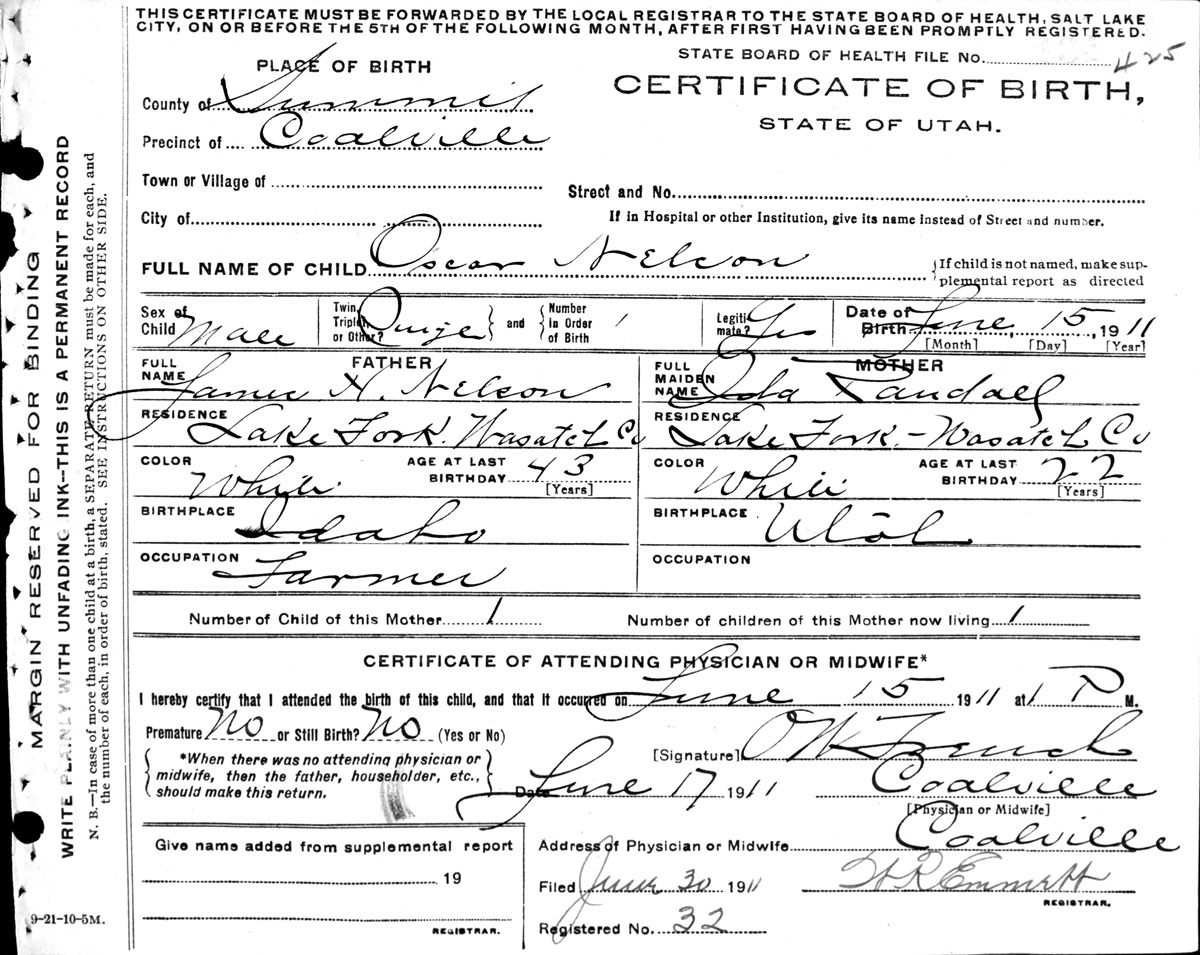 THIS CERTIFICATE MUST BE FORWARDED BY THE LOCAL REGISTRAR TO THE STATE BOARD OF HEALTH, SALT LAKE
CITY, ON OR BEFORE THE 5TH OF THE FOLLOWING MONTH, AFTER FIRST HAVING BEEN PROMPTLY REGISTERED.
STATE BOARD OF HEALTH FILE No. 425
PLACE OF BIRTH
CERTIFICATE OF BIRTH,
STATE OF UTAH.
County of Summit
Precinct of Coalville
Town or Village of
Street and No.
City of
If in Hospital or other Institution, give its name instead of Street and number.
FULL NAME OF CHILD Oscar Nelson
If child is not named, make sup-
plemental report as directed
Sex of Child Male
Twin, Triplet, or Other? Single and Number in Order of Birth 1
Legiti-mate? Yes
Date of Birth June 15, 1911
[Month] [Day] [Year]
FATHER
FULL NAME James H. Nelson
RESIDENCE Lake Fork. Wasatch Co
COLOR White AGE AT LAST BIRTHDAY 43
[Years]
BIRTHPLACE Idaho
OCCUPATION Farmer
MOTHER
FULL MAIDEN NAME Ida Randall
RESIDENCE Lake Fork - Wasatch Co
COLOR White AGE AT LAST BIRTHDAY 22
[Years]
BIRTHPLACE Utah
OCCUPATION
Number of Child of this Mother 1 Number of children of this Mother now living 1
CERTIFICATE OF ATTENDING PHYSICIAN OR MIDWIFE*
I hereby certify that I attended the birth of this child, and that it occurred on June 15 1911 at 1 P M.
Premature No or Still Birth? No (Yes or No)
[Signature] O W French
*When there was no attending physician or
midwife, then the father, householder, etc.,
should make this return.
Date June 17 1911 Coalville
[Physician or Midwife]
Give name added from supplemental report
19
REGISTRAR.
Address of Physician or Midwife Coalville
Filed June 30 1911 H R Emmett
REGISTRAR.
Registered No. 32
9-21-10-5M.
MARGIN RESERVED FOR BINDING
WRITE PLAINLY WITH UNFADING INK—THIS IS A PERMANENT RECORD
N. B.—In case of more than one child at a birth, a SEPARATE RETURN must be made for each, and
the number of each, in order of birth, stated. SEE INSTRUCTIONS ON OTHER SIDE.